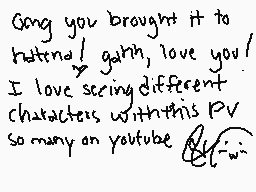 omg you brought it to
hatena! gahh, love you!
I love seeing different
characters with this PV
so many on youtube